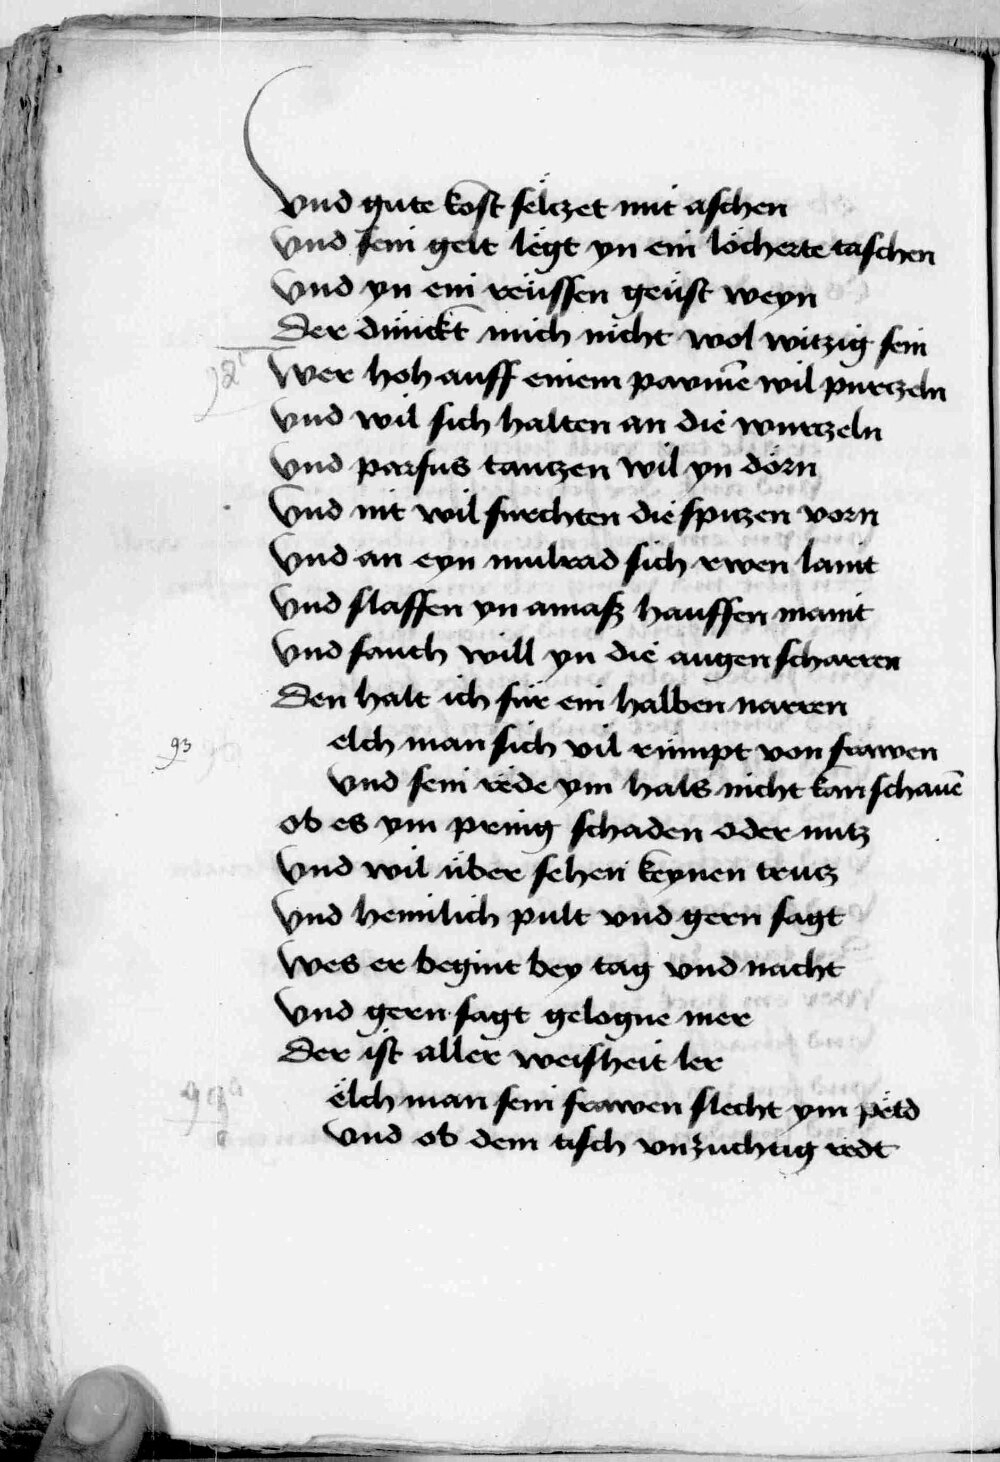 Vnd gute kost selczet mit aschen
Vnd sein gelt legt yn ein löcherte taschen
Vnd yn ein reüssen geüst weyn
Der dünckt mich nicht wol witzig sein
92
Wer hoh auff einem pawmē wil purczeln
Vnd wil sich halten an die wurczeln
Vnd parfus tanczen wil yn dörn
Vnd nit wil furchten die spiczen vorn
Vnd an eyn mulrad sich rwen lant
Vnd slaffen yn amaß hauffen mant
Vnd sauch will yn die augen scharren
Den halt ich für ein halben narren
93
elch man sich vil rümpt von frawen
Vnd sein rede ym hals nicht kan schauē
ob es ym pring schaden oder nutz
Vnd wil über sehen keynen trucz
Vnd heimlich pult vnd gern sagt
Wes er begint bey tag vnd nacht
Vnd gern sagt gelogne mer
Der ist aller weisheit ler
99a
elch man sein frawen slecht ym petd
Vnd ob dem tisch vnzuchtig redt